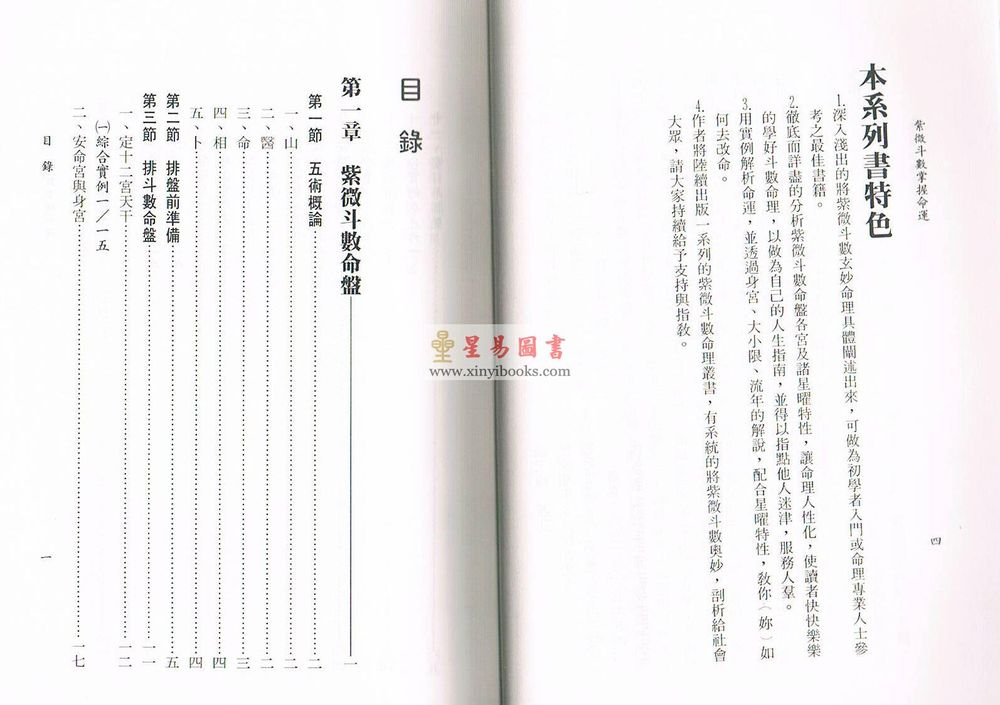 紫微斗數掌握命運
四
本系列書特色
1.深入淺出的將紫微斗數玄妙命理具體闡述出來，可做為初學者入門或命理專業人士參
考之最佳書籍。
2.徹底而詳盡的分析紫微斗數命盤各宮及諸星曜特性，讓命理人性化，使讀者快快樂樂
的學好斗數命理，以做為自己的人生指南，並得以指點他人迷津，服務人羣。
3.用實例解析命運，並透過身宮、大小限、流年的解說，配合星曜特性，教你（妳）如
何去改命。
4.作者將陸續出版一系列的紫微斗數命理叢書，有系統的將紫微斗數奧妙，剖析給社會
大眾，請大家持續給予支持與指教。
目錄
第一章　紫微斗數命盤————一
第一節　五術概論…………二
一、山…………二
二、醫…………二
三、命…………三
四、相…………四
五、卜…………四
第二節　排盤前準備…………五
第三節　排斗數命盤…………一一
一、定十二宮天干…………一二
㈠綜合實例一／一五
二、安命宮與身宮…………一七
目錄
一
星易圖書
www.xinyibooks.com